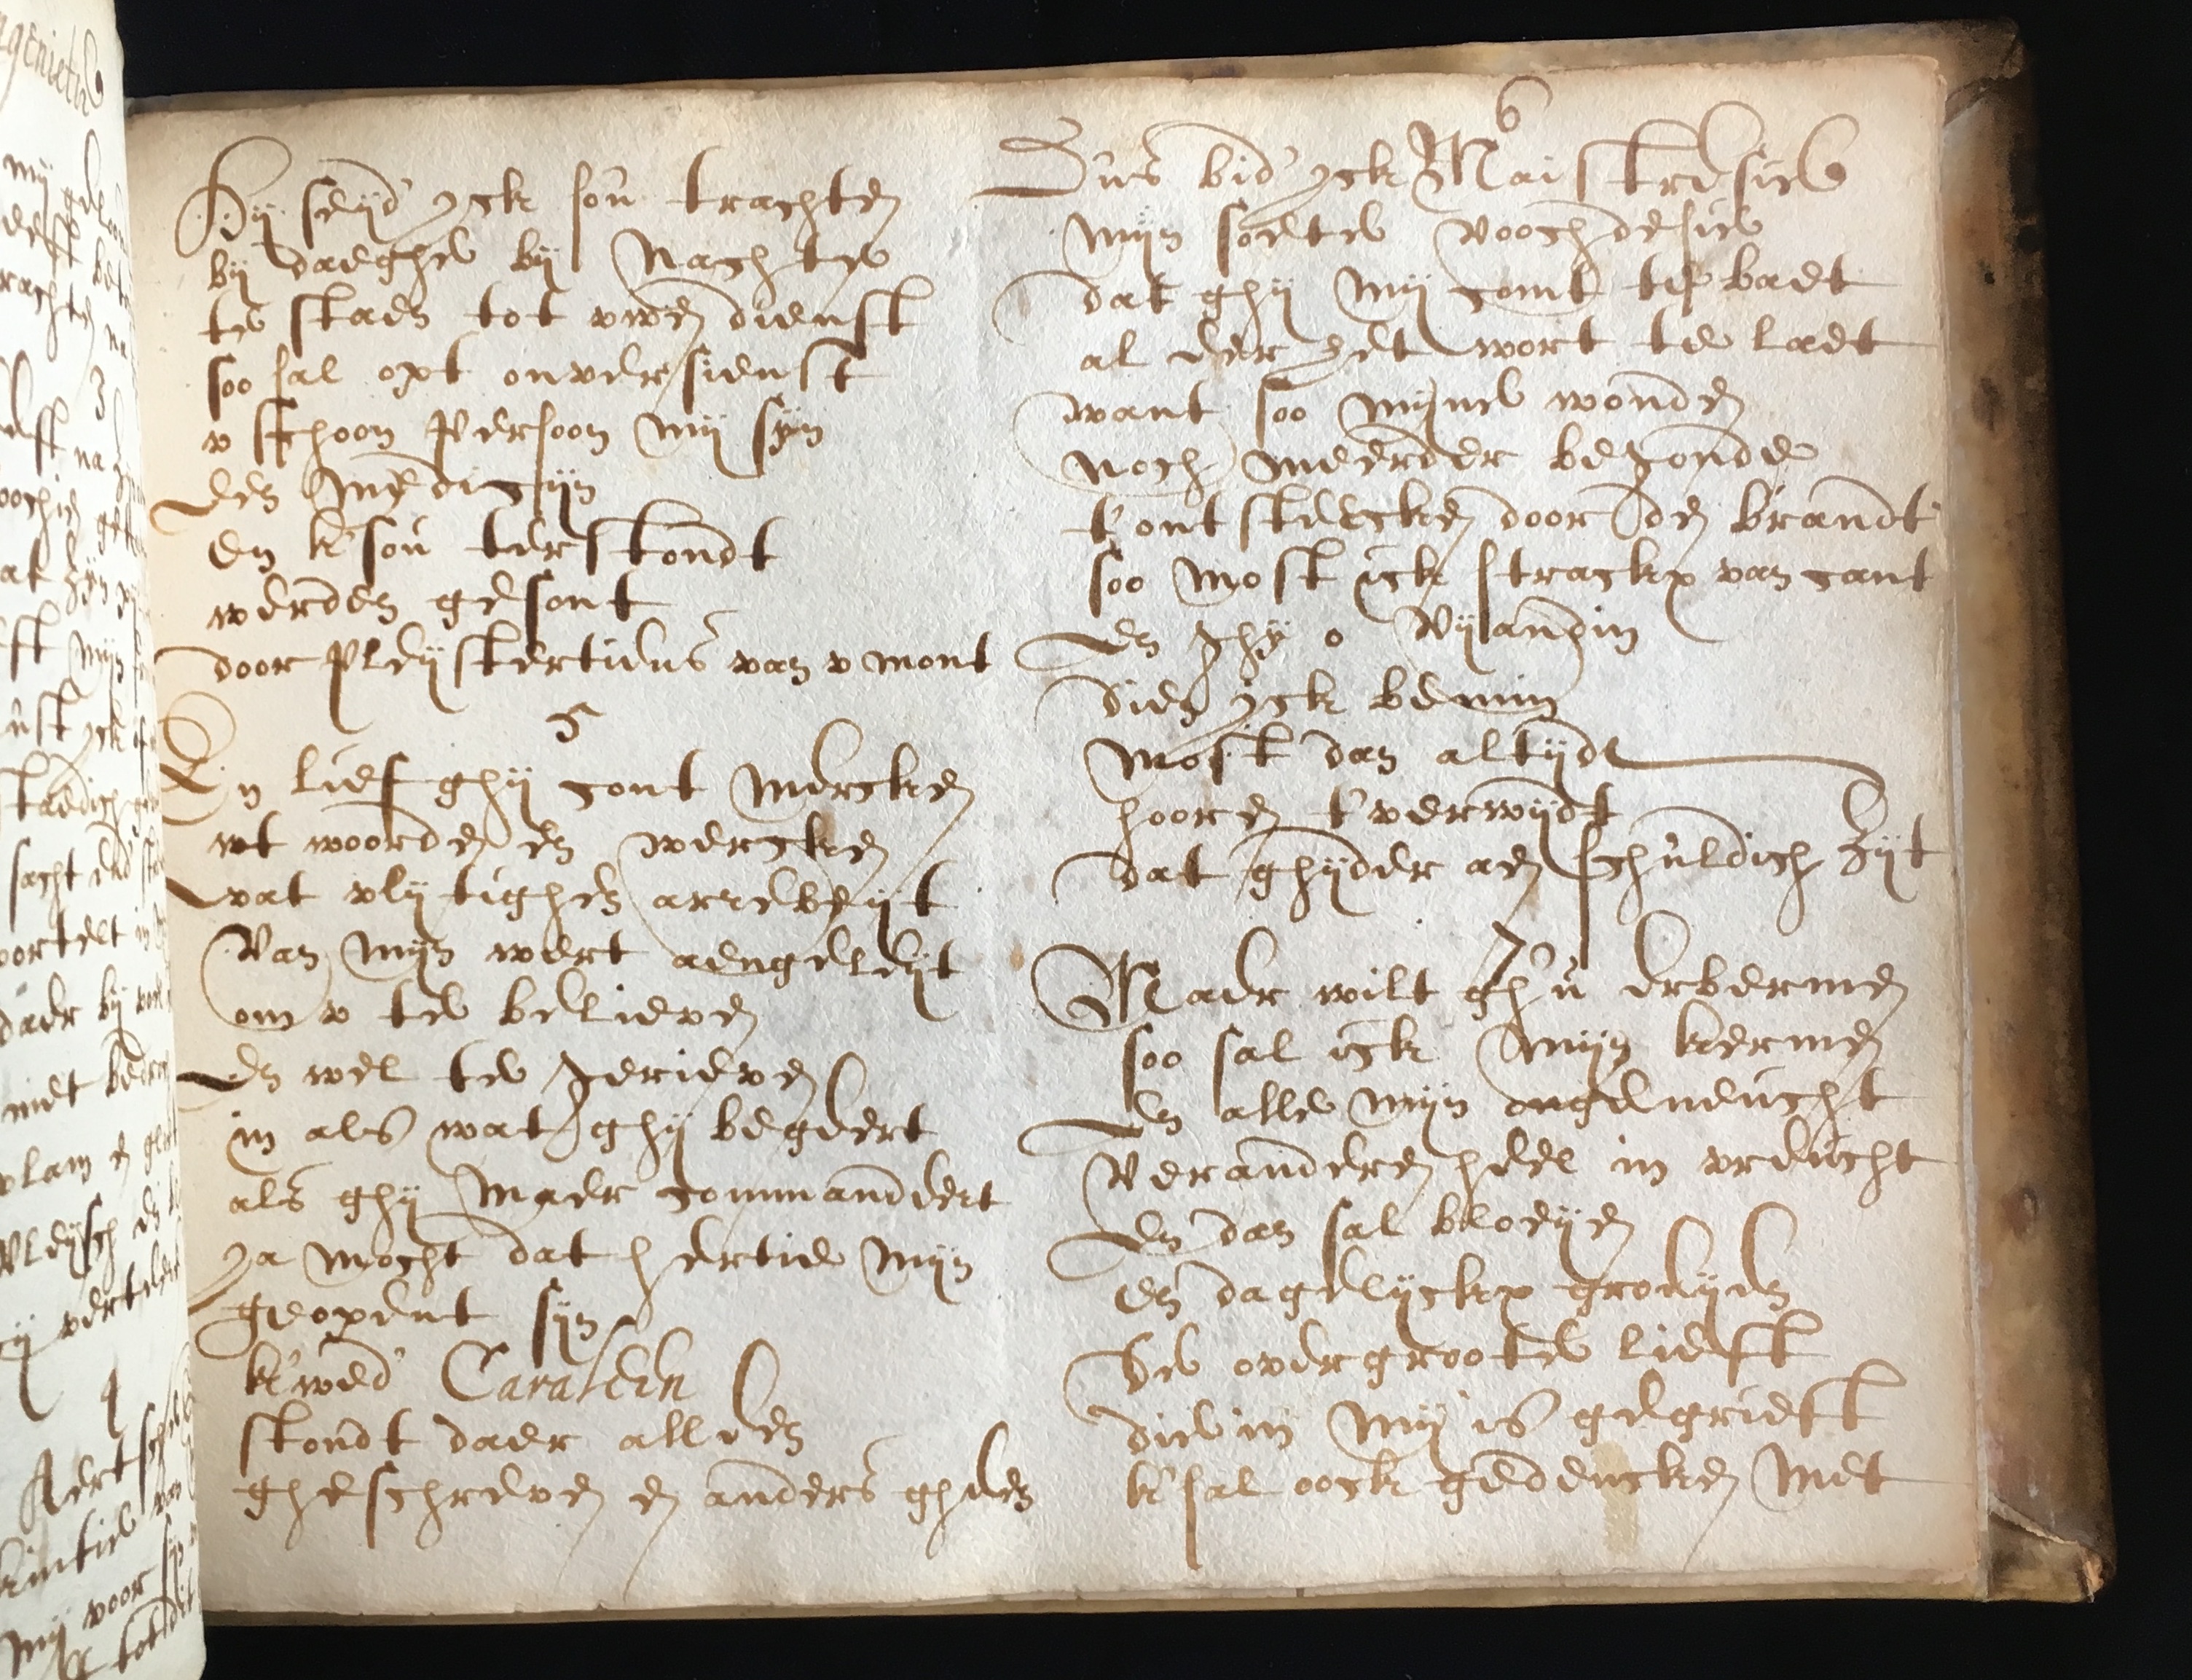 Hij seijd' yck sou trachten
bij daeghe bij Nachte
te staen tot vwen dienst
soo sal opt onversienst
v schoon Persoon mij sijn
een medicijn
en k'sou terstondt
werden gesont
door Pleijstertiens van v mont
5
En lief ghij cont mercken
wt woorden en wercken
wat vlijtighen arrebeijt
van mijn wert aengeleijt
om v te believen
en wel te gerieven
in als wat ghij begeert
als ghij maer commandeert
ya mocht dat hertie mijn
geopent sijn
k'wed' Caraleen
stondt daer alleen
gheschreven en anders gheen
6
Dus bid' yck Maistresie
mijn soete voochdesie
dat ghij mij comt te baet
al eer het wort te laet
want soo mijne wonden
noch meerder begonde
t'ontsteecken door den brandt
soo most ick strackx van cant
en ghij o vijandin
dien yck bemin
most dan altijdt
hooren t'verwijdt
dat ghijder aen schuldich zijt
7
Maer wilt gh'u erbermen
soo sal ick mijn kermen
en alle mijn ongeneucht
veranderen heel in vreucht
en dan sal bloeijen
en dagelijckx groeijen
De overgroote lieft
die in mij is gegrieft
k'sal oock gedencken met